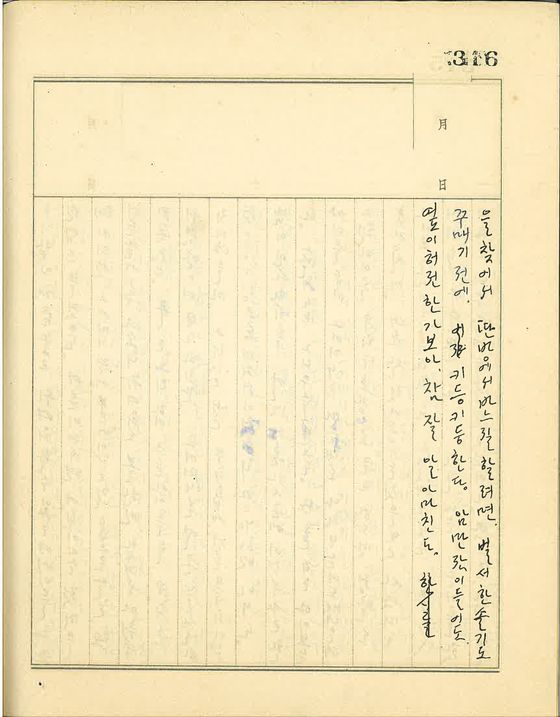 316
月
日
을 찾어서 딴번에서 바느질할려면. 벌서 한솔기도
꾸매기전에. 키등키등한다. 암만 잠이들어도
옆이허전한가보아. 참 잘 알아마친다.